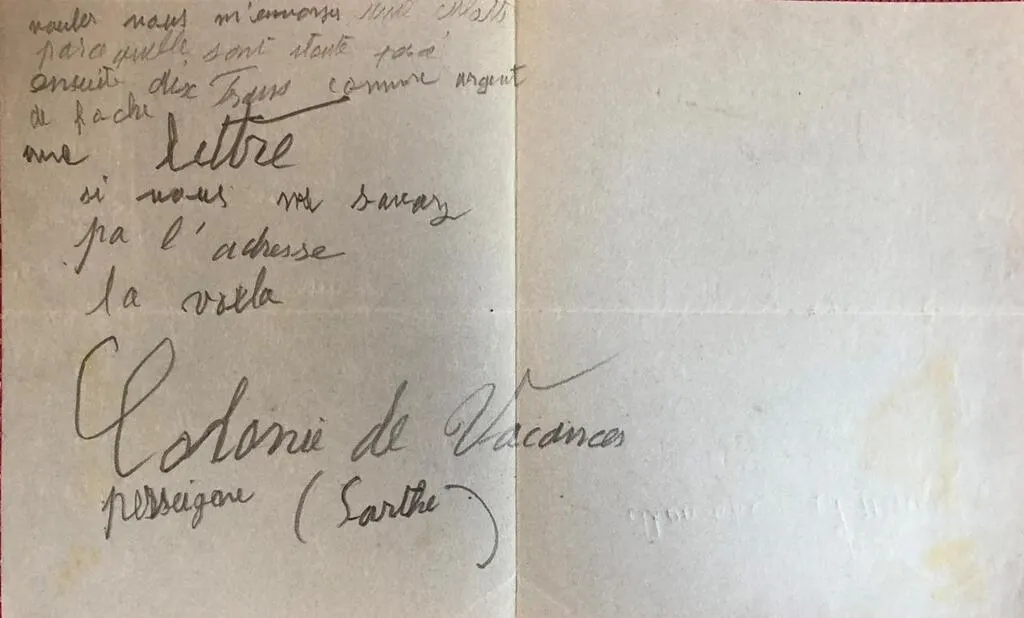 vouler vous m'envoyer
sont toute
ensuite dix Frans comme argent
de poche
une lettre
si vous ne savez
pa l'adresse
la voila
Colonie de Vacances
perseigne (Sarthe)